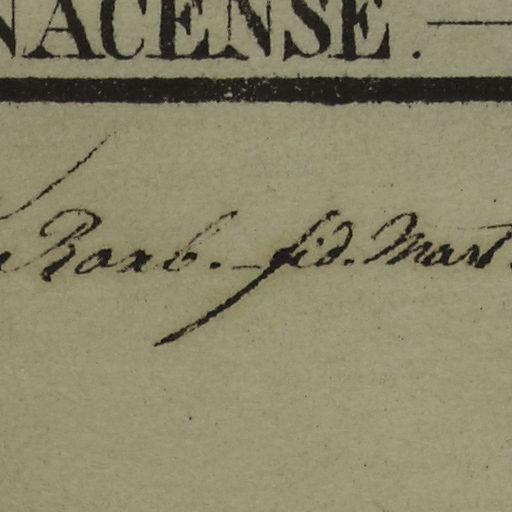 NACENSE. —
Roxb. — fid. Mart.